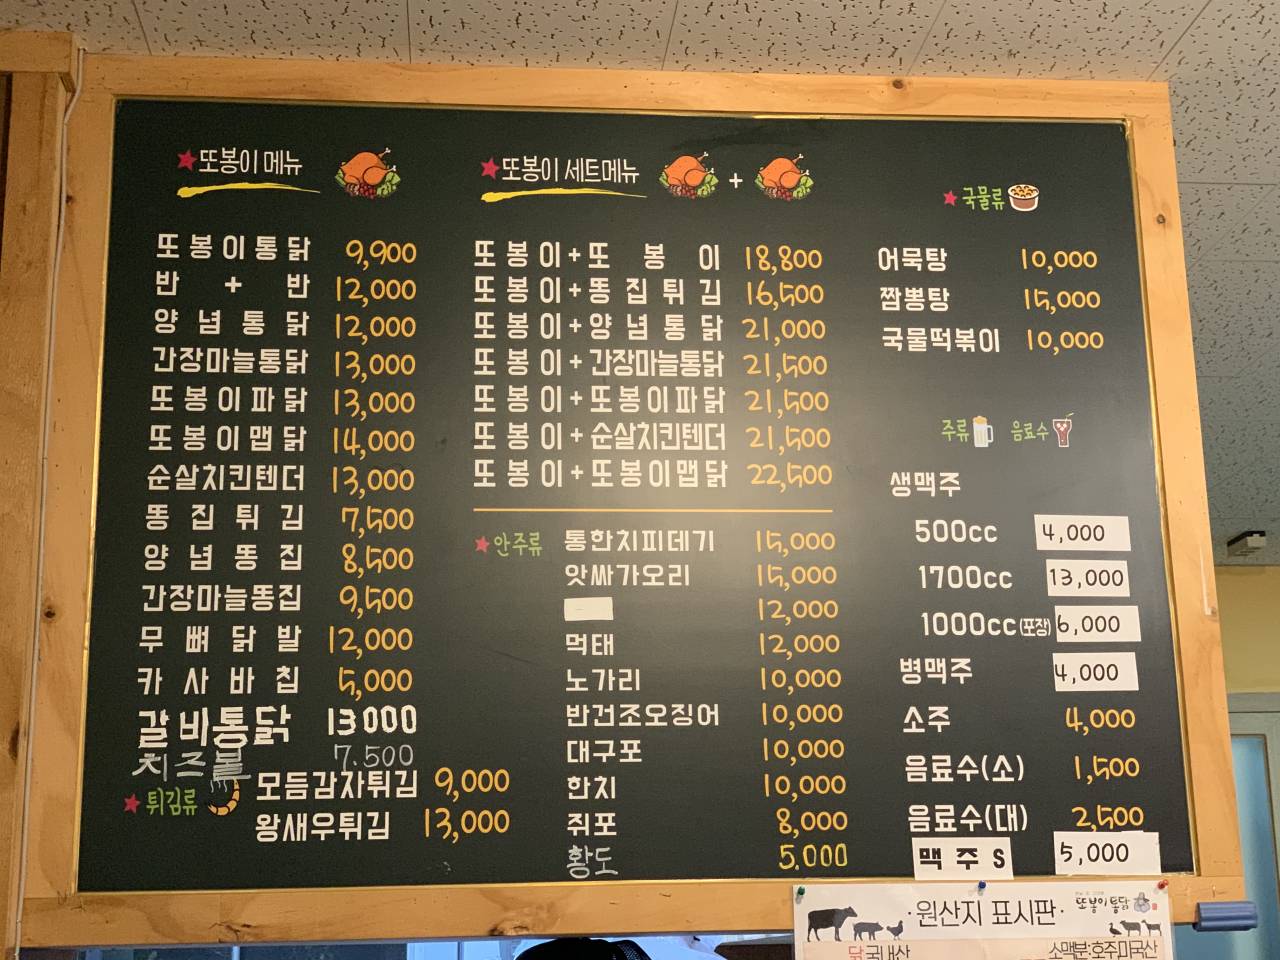 또봉이 메뉴
또봉이통닭 9,900
반 + 반 12,000
양념통닭 12,000
간장마늘통닭 13,000
또봉이파닭 13,000
또봉이맵닭 14,000
순살치킨텐더 13,000
똥집튀김 7,500
양념똥집 8,500
간장마늘똥집 9,500
무뼈닭발 12,000
카사바칩 5,000
갈비통닭 13000
치즈볼 7.500
튀김류
모듬감자튀김 9,000
왕새우튀김 13,000
또봉이 세트메뉴 +
또봉이+또봉이 18,800
또봉이+똥집튀김 16,500
또봉이+양념통닭 21,000
또봉이+간장마늘통닭 21,500
또봉이+또봉이파닭 21,500
또봉이+순살치킨텐더 21,500
또봉이+또봉이맵닭 22,500
안주류
통한치피데기 15,000
앗싸가오리 15,000
12,000
먹태 12,000
노가리 10,000
반건조오징어 10,000
대구포 10,000
한치 10,000
쥐포 8,000
황도 5.000
국물류
어묵탕 10,000
짬뽕탕 15,000
국물떡볶이 10,000
주류 음료수
생맥주
500cc 4,000
1700cc 13,000
1000cc(포장) 6,000
병맥주 4,000
소주 4,000
음료수(소) 1,500
음료수(대) 2,500
맥주 S 5,000
·원산지 표시판·
또봉이통닭
닭:국내산
소맥분:호주,미국산